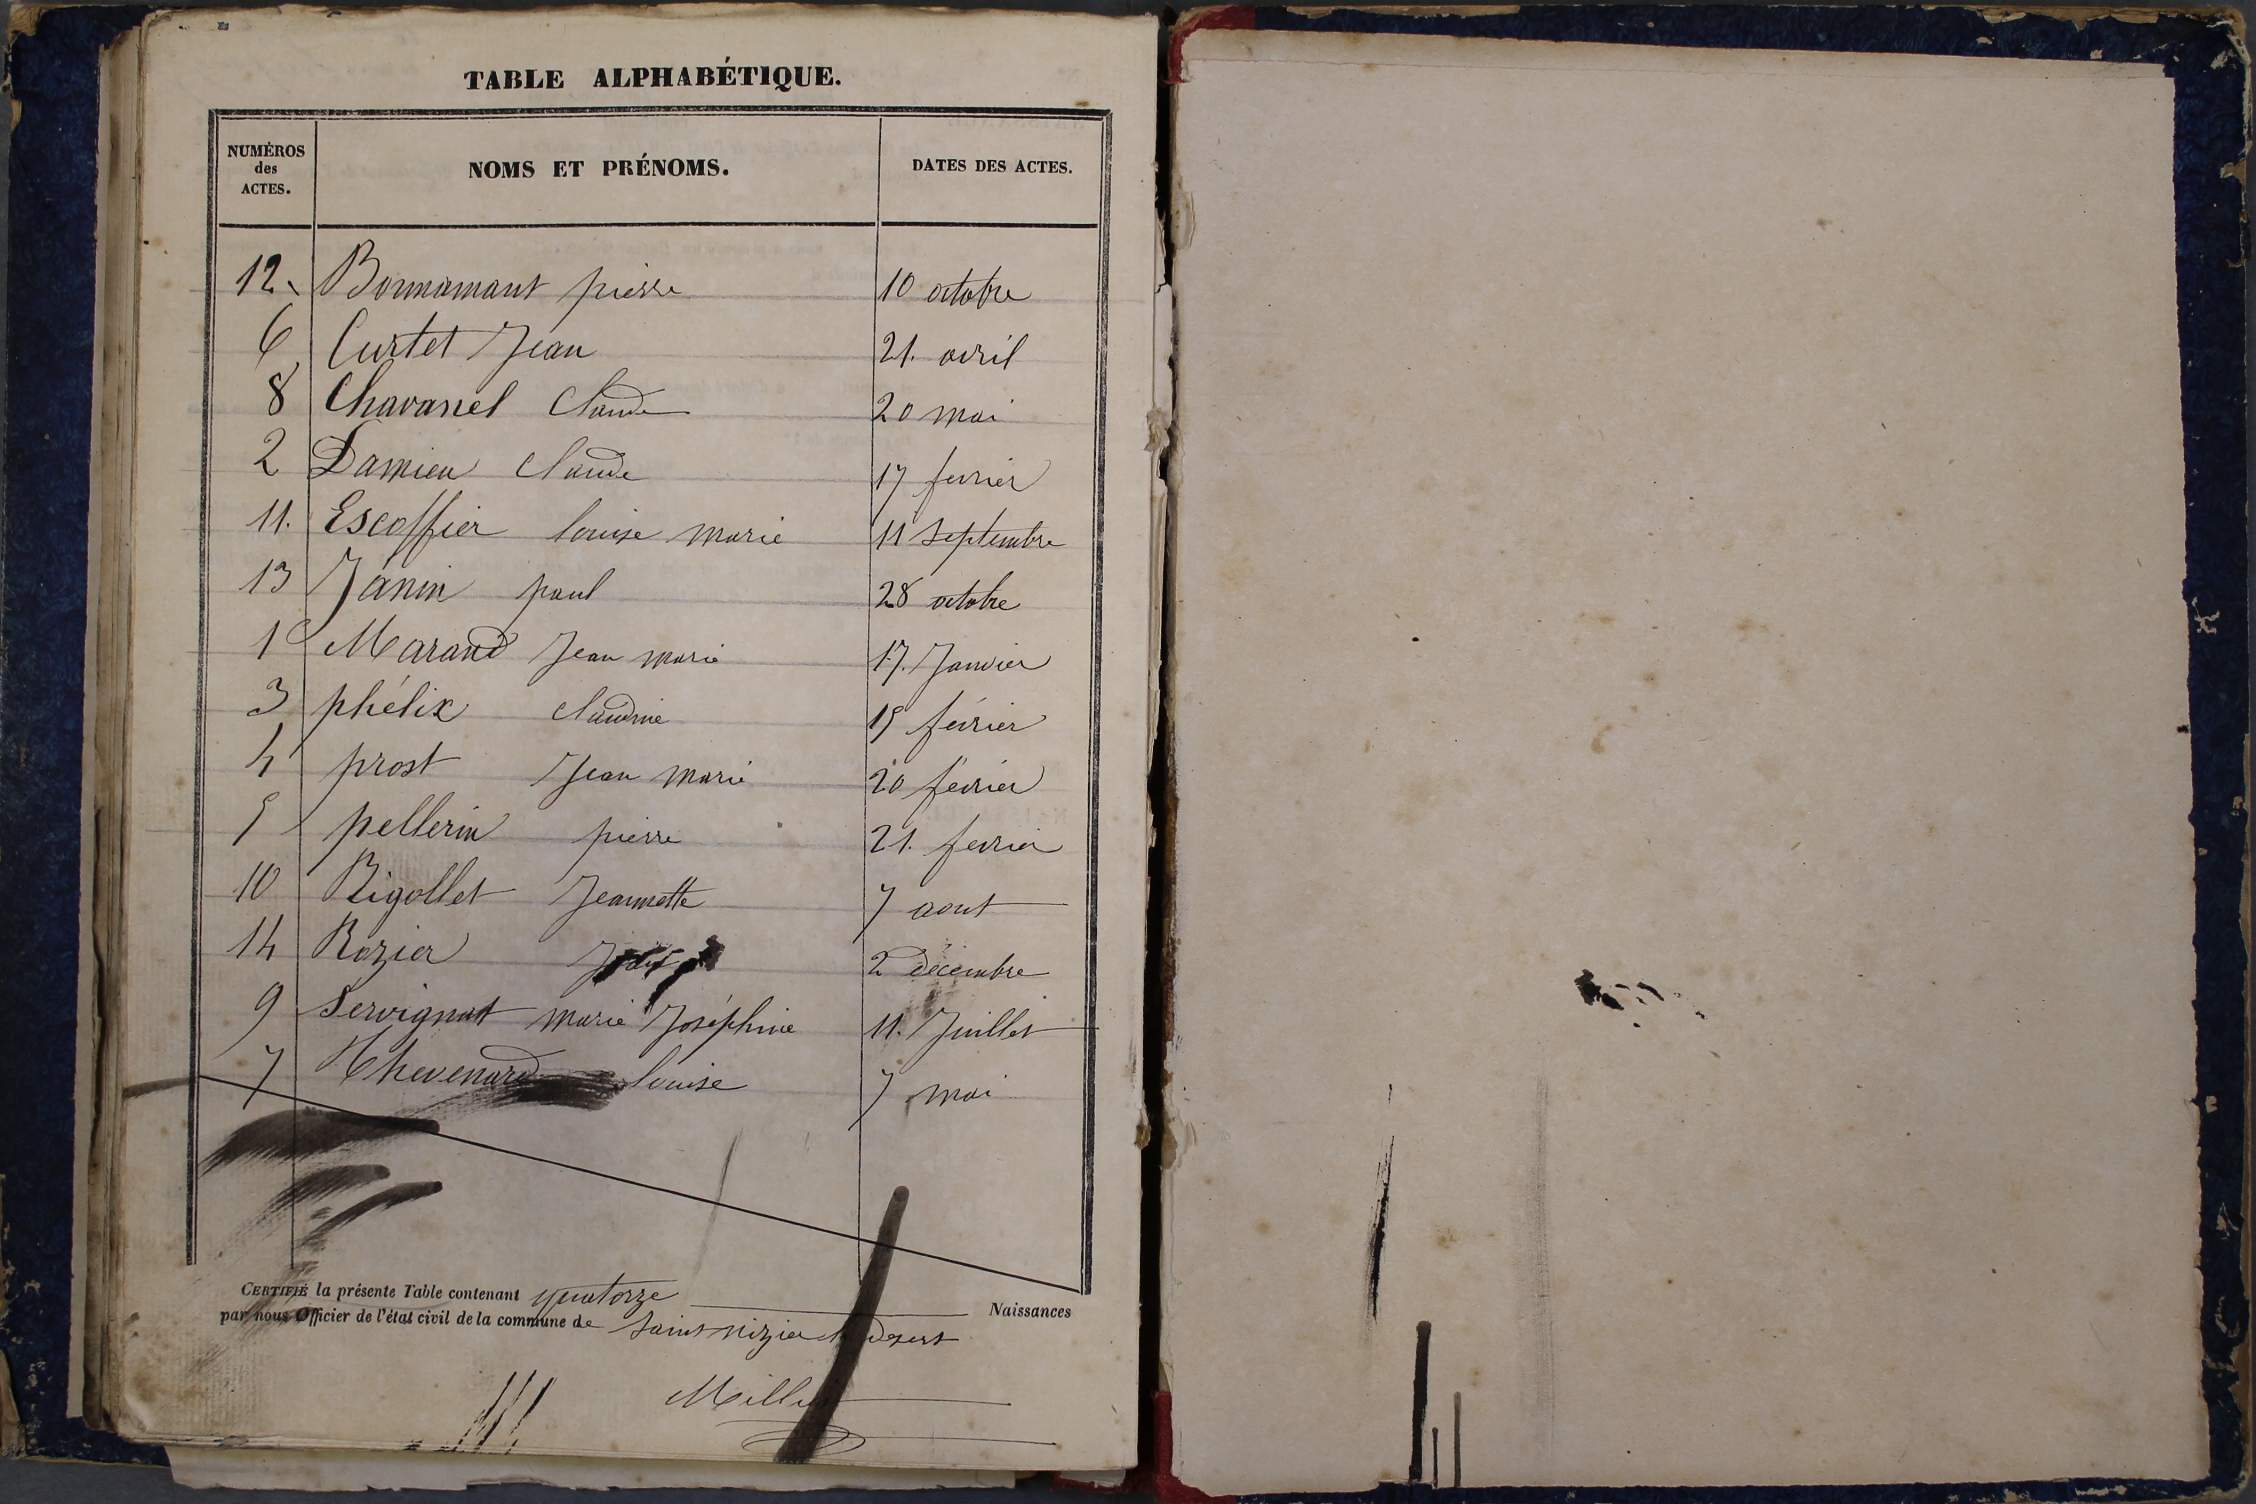 TABLE ALPHABÉTIQUE.
NUMÉROS des ACTES. NOMS ET PRÉNOMS. DATES DES ACTES.
12. Bonnamant pierre 10 octobre
6 Curtet Jean 21. avril
8 Chavanel Claude 20 mai
2 Damien Claude 17 fevrier
11. Escoffier louise marie 11 septembre
13 Janin paul 28 octobre
1 Marand Jean marie 17. Janvier
3 phélix Claudine 19 février
4 prost Jean marie 20 février
5 pellerin pierre 21. fevrier
10 Rigollet Jeannette 7 aout
14 Rozier 2 décembre
9 Servignat marie Joséphine 11. Juillet
7 Thevenard louise 7 mai
CERTIFIÉ la présente Table contenant quatorze Naissances
par nous Officier de l'état civil de la commune de Saint nizier le desert